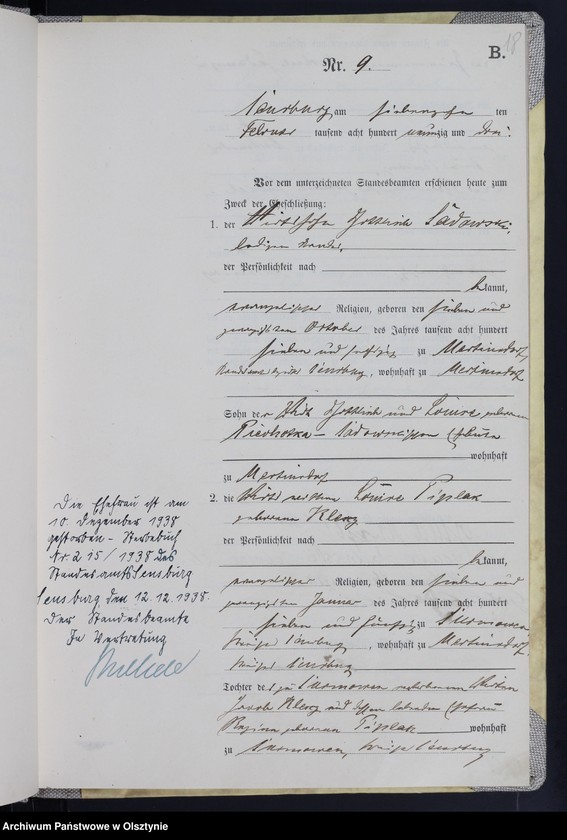 B. 18
Nr. 9.
Sensburg am siebenzehn ten
Februar tausend acht hundert neunzig und drei.
Vor dem unterzeichneten Standesbeamten erschienen heute zum
Zweck der Eheschließung:
1. der Wirthssohn Gottlieb Sadowski,
ledigen Standes,
der Persönlichkeit nach
bekannt,
evangelischer Religion, geboren den sieben und
zwanzigsten October des Jahres tausend acht hundert
sieben und sechszig zu Martinsdorf
Standesamtsbezirk Sensburg, wohnhaft zu Martinsdorf
Sohn der Wirth Gottlieb und Louise, geborenen
Sadowskischen Eheleute
wohnhaft
zu Martinsdorf
2. die Louise Piplak
geborene
der Persönlichkeit nach
bekannt,
evangelischer Religion, geboren den sieben und
zwanzigsten Januar des Jahres tausend acht hundert
sieben und fünfzig zu
Kreises Sensburg, wohnhaft zu Martinsdorf
Kreises Sensburg
Tochter des zu verstorbenen
Jacob und dessen lebenden Ehefrau
Regina geborenen Piplak wohnhaft
zu Kreises Sensburg
Die Ehefrau ist am
10. Dezember 1938
gestorben – Sterbebuch
Nr. 215/1938 des
Standesamts Sensburg
Sensburg den 12.12.1938.
Der Standesbeamte
In Vertretung
Archiwum Państwowe w Olsztynie